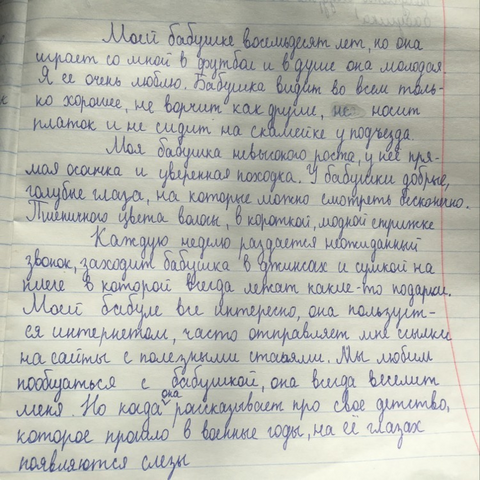 Моей бабушке восемьдесят лет, но она
играет со мной в футбол и в душе она молодая.
Я ее очень люблю. Бабушка видит во всем толь-
ко хорошее, не ворчит как другие, не носит
платок и не сидит на скамейке у подъезда
Моя бабушка невысокого роста, у неё пря-
мая осанка и уверенная походка. У бабушки добрые,
голубые глаза, на которые можно смотреть бесконечно.
Пшеничного цвета волосы, в короткой, модной стрижке
Каждую неделю раздается неожиданный
звонок, заходит бабушка в джинсах и сумкой на
плече в которой всегда лежат какие-то подарки.
Моей бабуле все интересно, она пользует-
ся интернетом, часто отправляет мне ссылки
на сайты с полезными статьями. Мы любим
пообщаться с бабушкой, она всегда веселит
меня. Но когда она рассказывает про свое детство,
которое прошло в военные годы, на её глазах
появляются слезы